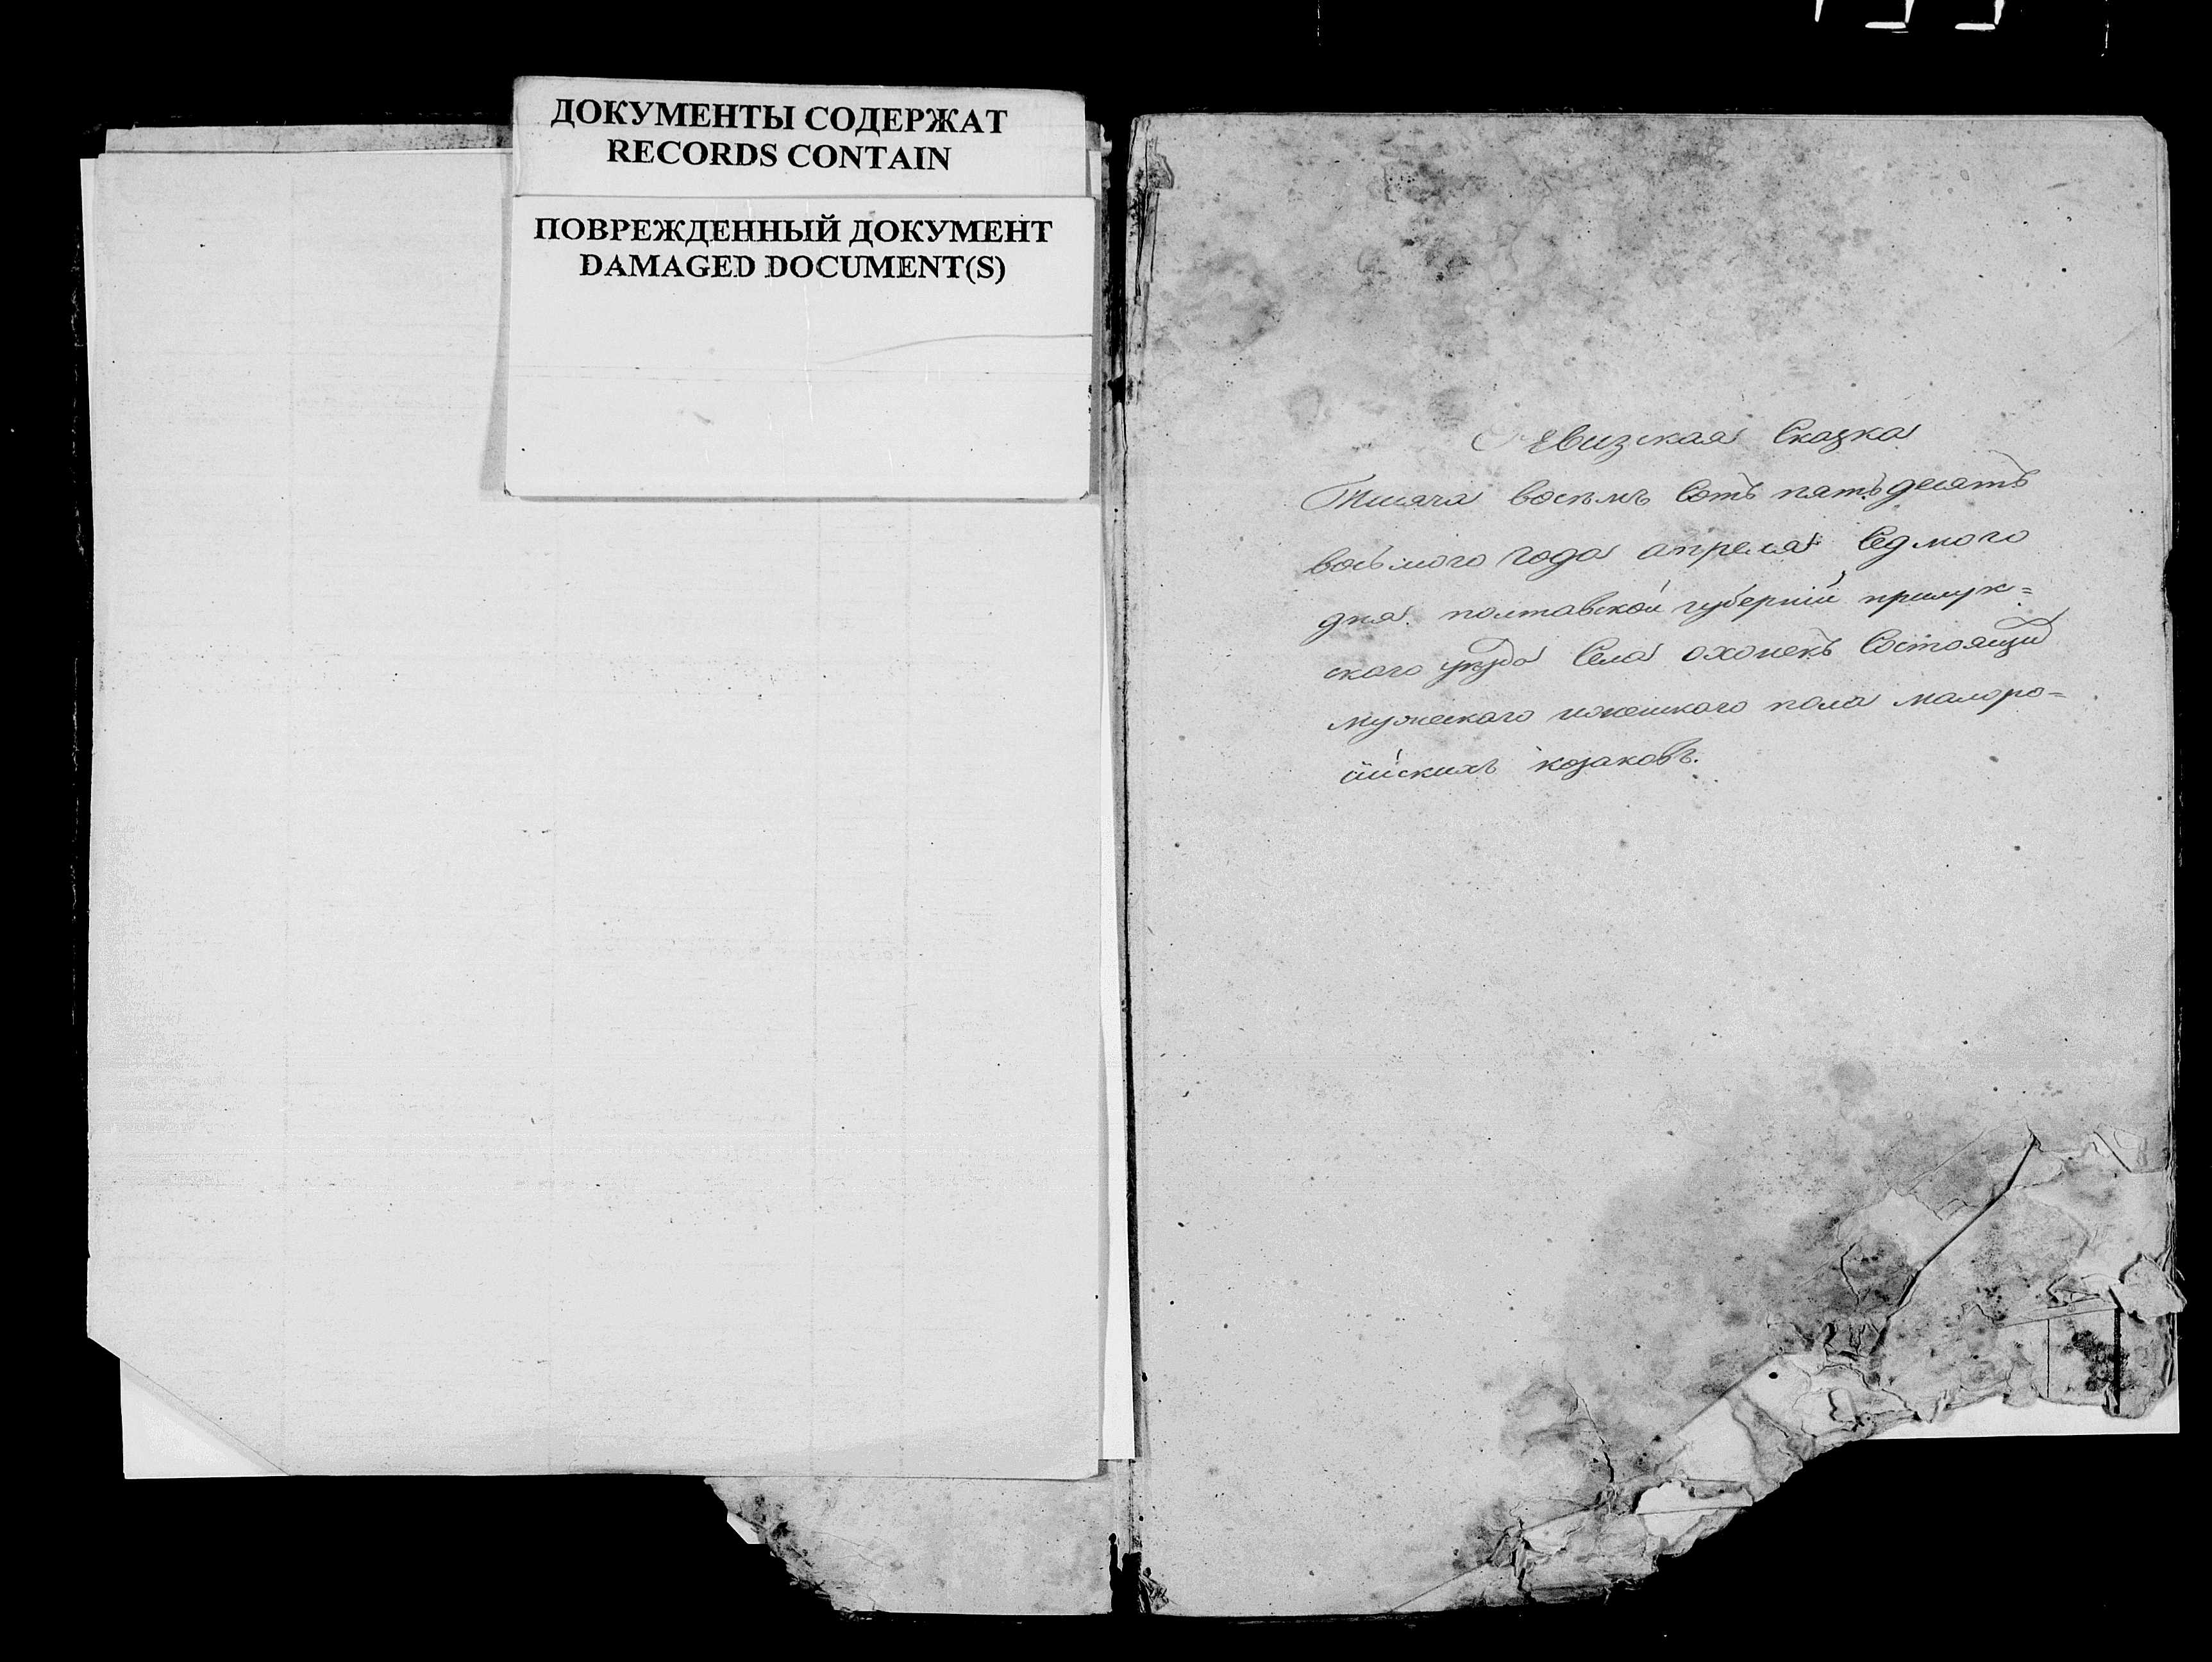 ДОКУМЕНТЫ СОДЕРЖАТ
RECORDS CONTAIN
ПОВРЕЖДЕННЫЙ ДОКУМЕНТ
DAMAGED DOCUMENT(S)
Ревизская Сказка
Тисяча восѣмъ Сотъ пятьдесятъ
восьмого года апреля Седмого
дня. полтавской губерніи прилук=
ского уѣзда Села охонекъ Состоящи
мужескаго иженскаго пола малоро=
сійскихъ козаковъ.